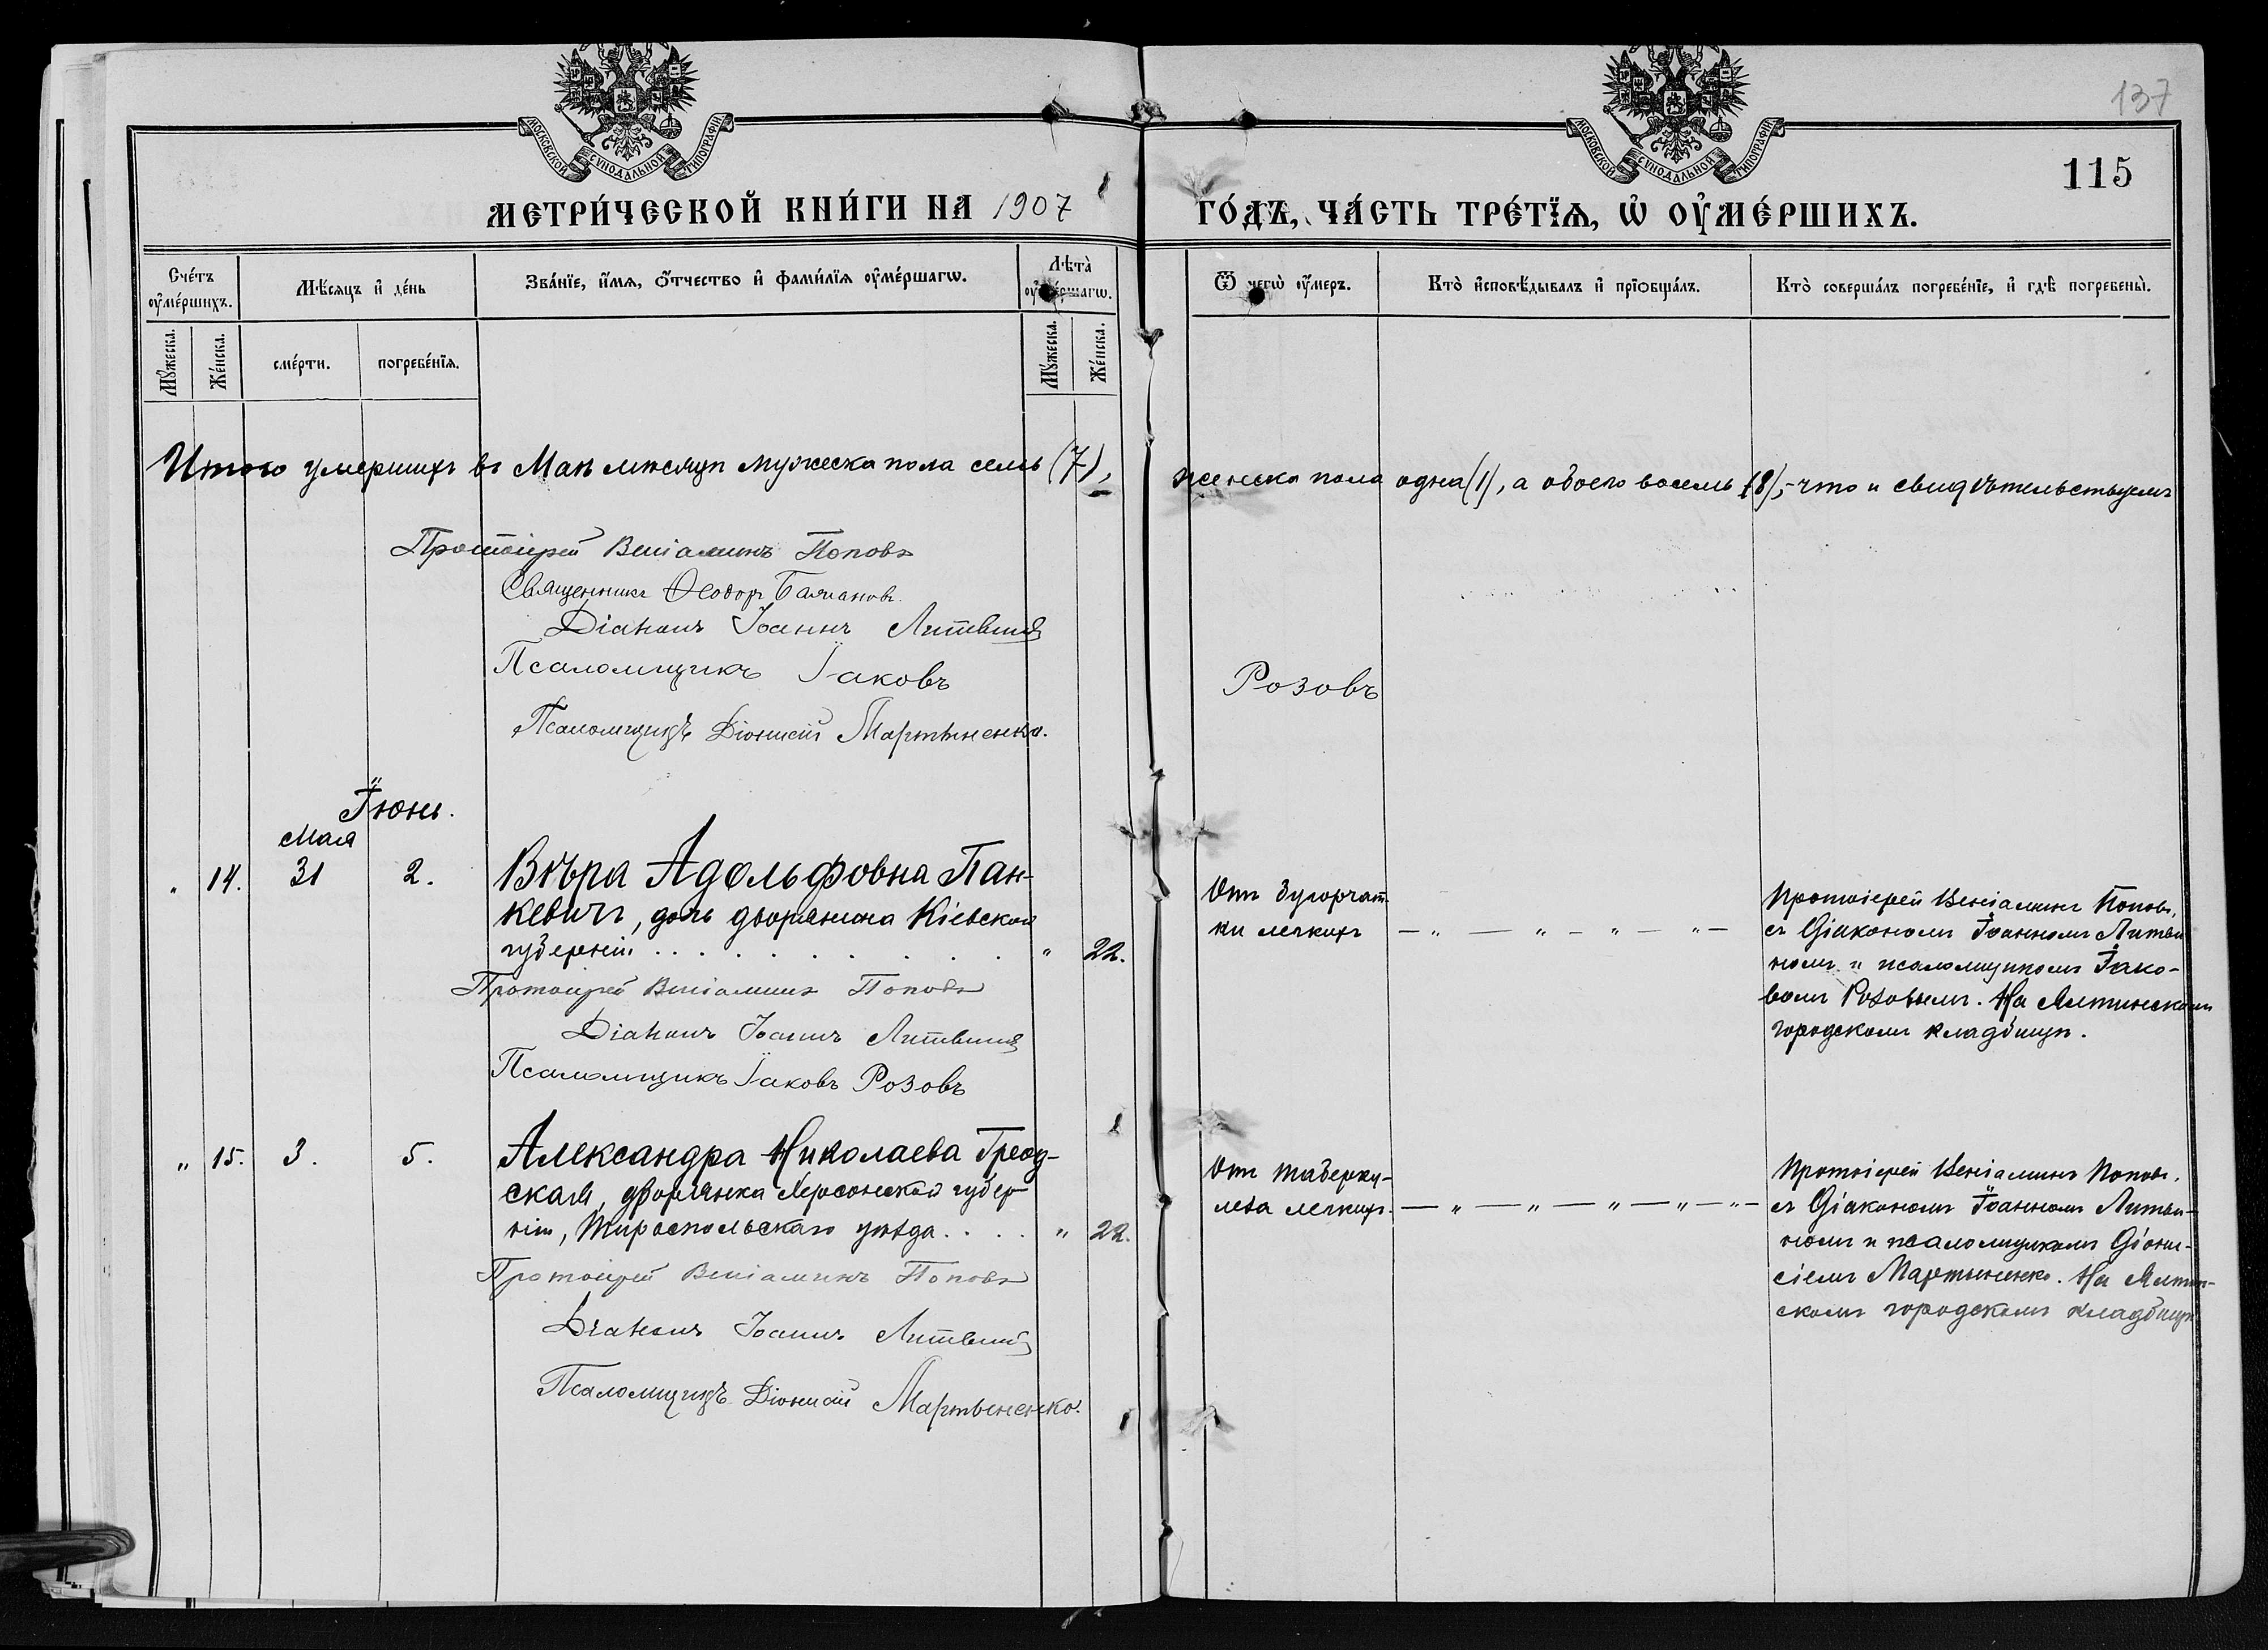 137
115
МОСКОВСКОЙ СѴНОДАЛЬНОЙ ТИПОГРАФІИ
МОСКОВСКОЙ СѴНОДАЛЬНОЙ ТИПОГРАФІИ
МЕТРИ́ЧЕСКОЙ КНИ́ГИ НА 1907 ГО́ДЪ, ЧА́СТЬ ТРЕ́ТЇѦ, Ѡ҆ ОУ҆МЕ́РШИХЪ.
Сче́тъ оу҆ме́ршихъ.
Мѣ́сяцъ и҆ де́нь
Зва́нїе, и҆́мѧ, ѻ҆́тчество и҆ фами́лїѧ оу҆ме́ршагѡ.
Лѣ́та оу҆ме́ршагѡ.
Ѿ чегѡ̀ оу҆́меръ.
Кто̀ и҆сповѣ́дывалъ и҆ прїѡбща́лъ.
Кто̀ соверша́лъ погребе́нїе, и҆ гдѣ̀ погребены̀.
Мꙋ́жеска.
Же́нска.
сме́рти.
погребе́нїѧ.
Мꙋ́жеска.
Же́нска.
Итого умершихъ въ Маѣ мѣсяцѣ мужеска пола семь (7), женска пола одна (1), а обоего восемь (8),- что и свидѣтельствуемъ
Протоіерей Веніаминъ Поповъ
Священникъ Ѳеодоръ
Діаконъ Іоаннъ Литвинъ
Псаломщикъ Іаковъ Розовъ
Псаломщикъ Діонисій Мартыненко.
Іюнь.
Мая
" 14. 31 2.
Вѣра Адольфовна Пан-
кевичъ, дочь дворянина Кіевской
губерніи . . . . . . . . . " 22.
Отъ бугорчат-
ки легкихъ — " — " — " — " —
Протоіерей Веніаминъ Поповъ,
съ Діакономъ Іоанномъ Литви-
номъ и псаломщикомъ Іако-
вомъ Розовымъ. На Ялтинскомъ
городскомъ кладбищѣ.
Протоіерей Веніаминъ Поповъ
Діаконъ Іоаннъ Литвинъ
Псаломщикъ Іаковъ Розовъ
" 15. 3. 5.
Александра Николаева
дворянка Херсонской губер-
ніи, Тираспольскаго уѣзда. . . . " 22.
Отъ туберку-
леза легкихъ. — " — " — " — " — " —
Протоіерей Веніаминъ Поповъ,
съ Діакономъ Іоанномъ Литви-
номъ и псаломщикомъ Діони-
сіемъ Мартыненко. На Ялтин-
скомъ городскомъ кладбищѣ
Протоіерей Веніаминъ Поповъ
Діаконъ Іоаннъ Литвинъ
Псаломщикъ Діонисій Мартыненко.